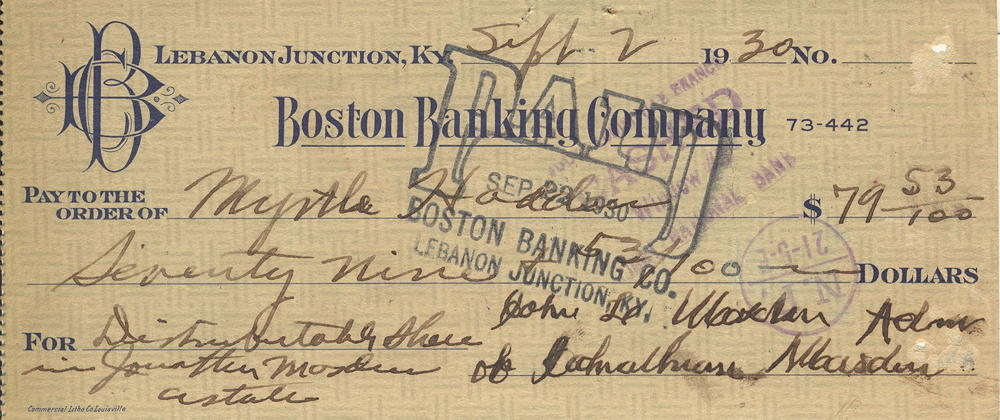 LEBANON JUNCTION, KY. Sept 2 1930 No.
BCB
BOSTON BANKING COMPANY 73-442
PAY TO THE ORDER OF Myrtle $ 79 53/100
Seventy Nine & 53/100 DOLLARS
FOR Distributable Share
in
estate
John W. Marsden Adm
of Johnathan Marsden
PAID
SEP 22 1930
BOSTON BANKING CO.
LEBANON JUNCTION, KY.
NATIONAL BANK
21-5-2
Commercial Litho. Co. Louisville